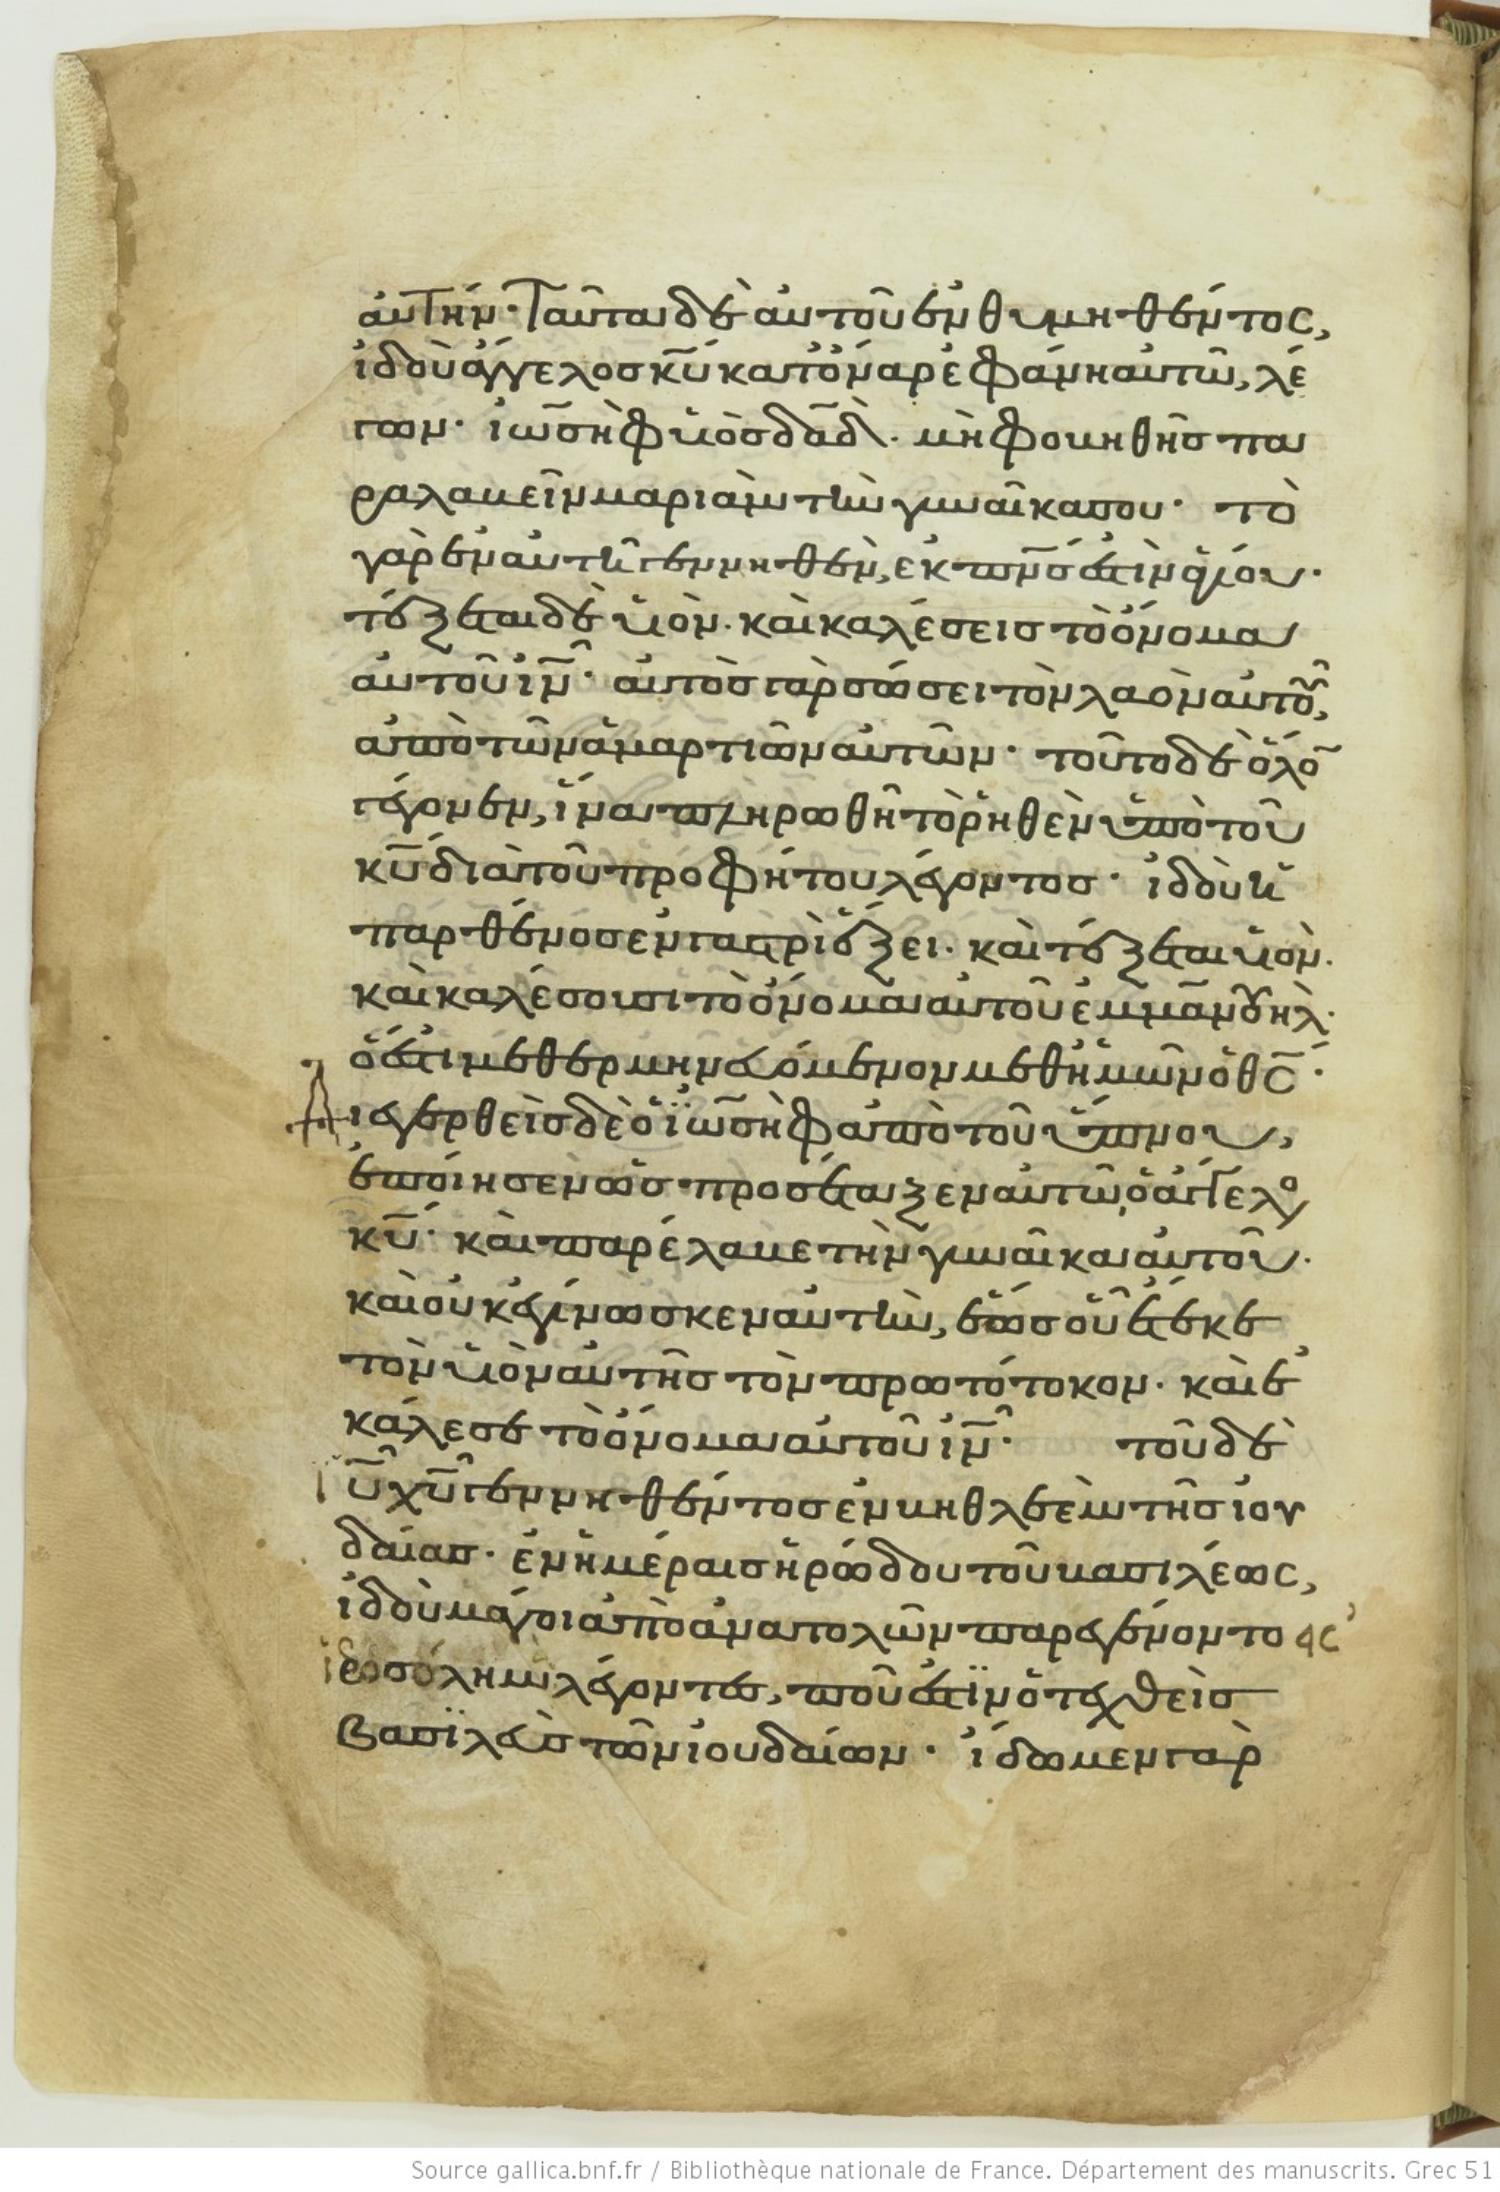 αὐτήν· Ταῦτα δὲ αὐτοῦ ἐνθυμηθέντος,
ἰδοὺ ἄγγελος κ̅υ̅ κατ ὄναρ ἐφάνη αὐτῶ, λέ
γων· ἰωσὴφ υἱὸς δα̅δ̅· μὴ φοβηθῆς πα
ραλαβεῖν μαριὰμ τὴν γυναῖκα σου· τὸ
γὰρ ἐν αὐτῆ γεννηθὲν, ἐκ π̅ν̅σ̅ ἐστὶν ἁγίου·
τέξεται δὲ υἱὸν· καὶ καλέσεις τὸ ὄνομα
αὐτοῦ ι̅ν̅· αὐτὸς γὰρ σώσει τὸν λαὸν αὐτοῦ,
ἀπὸ τῶν ἁμαρτιῶν αὐτῶν· τοῦτο δὲ ὅλο̅
γέγονεν, ἵνα πληρωθῆ τὸ ῥηθὲν ὑπὸ τοῦ
κ̅υ̅ διὰ τοῦ προφήτου λέγοντος· ἰδοὺ ἡ
παρθένος ἐν γαστρὶ ἕξει· καὶ τέξεται υἱὸν·
καὶ καλέσουσι τὸ ὄνομα αὐτοῦ ἐμμα̅νουηλ·
ὅ ἐστι μεθερμηνευόμενον μεθ ἡμῶν ὁ θ̅ς̅·
Διεγερθεὶς δὲ ὁ ἰωσὴφ ἀπὸ τοῦ ὕπνου,
ἐποίησεν ὡς προσέταξεν αὐτῶ, ὁ ἄγγελο
κ̅υ̅· καὶ παρέλαβε τὴν γυναῖκα αὐτοῦ·
καὶ οὐκ ἐγίνωσκεν αὐτὴν, ἕως οὗ ἔτεκε
τὸν υἱὸν αὐτῆς τὸν πρωτότοκον· καὶ ἐ
κάλεσε τὸ ὄνομα αὐτοῦ ι̅ν̅· τοῦ δὲ
ι̅υ̅ χ̅υ̅ γεννηθέντος ἐν βηθλεὲμ τῆς ἰου
δαίας· ἐν ἡμέραις ἡρώδου τοῦ βασιλέως,
ἰδοὺ μάγοι ἀπὸ ἀνατολῶν παρεγένοντο εἰς
ἱεροσόλημ λέγοντες, ποῦ ἐστϊν ὁ τεχθεὶς
βασϊλεὺς τῶν ἰουδαίων· ἴδωμεν γὰρ
Source gallica.bnf.fr / Bibliothèque nationale de France. Département des manuscrits. Grec 51